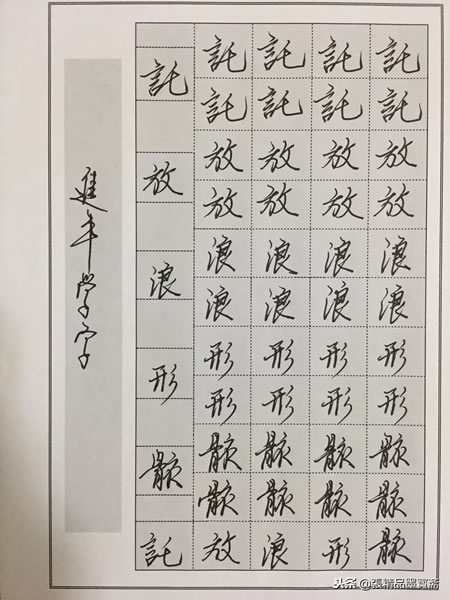 託 託 託 託 託
託 託 託 託
放 放 放 放 放
放 放 放 放
浪 浪 浪 浪 浪
浪 浪 浪 浪
形 形 形 形 形
形 形 形 形
骸 骸 骸 骸 骸
骸 骸 骸 骸
託 放 浪 形 骸
進年学字
头条 @張精品墨寶斋